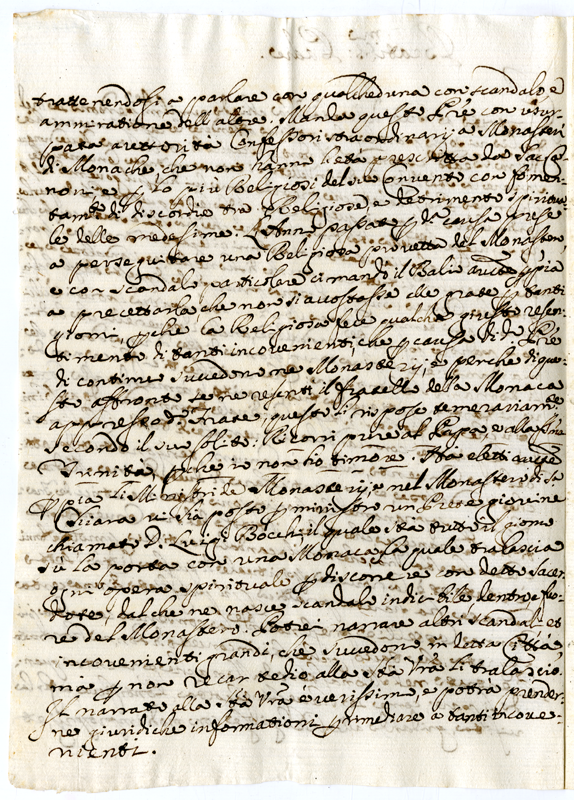 trattenendosi a parlare con qualcheduna con scandalo e
ammiratione dell'altre. Manda questo Pre con usur-
pata autorità Confessori straordinarij a Monasteri
di Monache, che non hanno l'età prescritta da Sac. Ca-
noni e p lo più Religiosi del suo Convento con fomen-
tam.to di discordie tra Religiose, e detrimento spiritua-
le delle medesime. L'Anno passato p d.a causa prese
a perseguitare una Religiosa provetta del Monastero
e con scandalo particolare ci mandò il Balio
a precettarla che non si accostasse alle grate p tanti
giorni, p che la Religiosa fece qualche giusto resen-
timento di tanti inconvenienti, che p causa di d.o Pre
di continuo succedono ne Monasterij, e perche di que-
sto affronto se ne resentì il fratello della Monaca
appresso d.o frate, questo li rispose temerariam.te
secondo il suo solito. Ricorri pure al Papa, e alla
Trinità, p che io non hò timore. Ha eletti
p pia li Ministri de Monasterij, e nel Monastero di S.a
Chiara vi hà posto p ministro un Prete giovine
chiamato D. Luigi Bocchi, il quale stà tutto il giorno
sù la porta con una Monaca, la quale tralascia
ogni opera spirituale p discorrere con detto Sacer-
dote, dal che ne nasce scandalo indicibile dentro, e fuo-
re del Monastero. Potrei narrare altri scandali et
inconvenienti grandi, che succedono in detta Città
mà p non recar tedio alla S.tà Vra li tralascio.
Il narrato alla S.tà Vra è verissimo, e potrà prender-
ne giuridiche informationi p rimediare a tanti incove-
nienti.